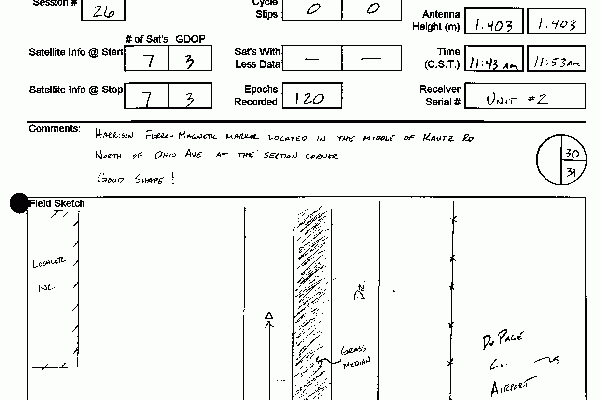 Session # 26
Cycle Slips 0 0
Antenna Height (m) 1.403 1.403
# of Sat's GDOP
Satellite Info @ Start 7 3
Sat's With Less Data — —
Time (C.S.T.) 11:43 am 11:53 am
Satellite Info @ Stop 7 3
Epochs Recorded 120
Receiver Serial # UNIT #2
Comments: HARRISON FERRO-MAGNETIC MARKER LOCATED IN THE MIDDLE OF KAUTZ RD
NORTH OF OHIO AVE AT THE SECTION CORNER
GOOD SHAPE!
30
31
Field Sketch
INC.
DR.
GRASS
MEDIAN
DU PAGE
AIRPORT